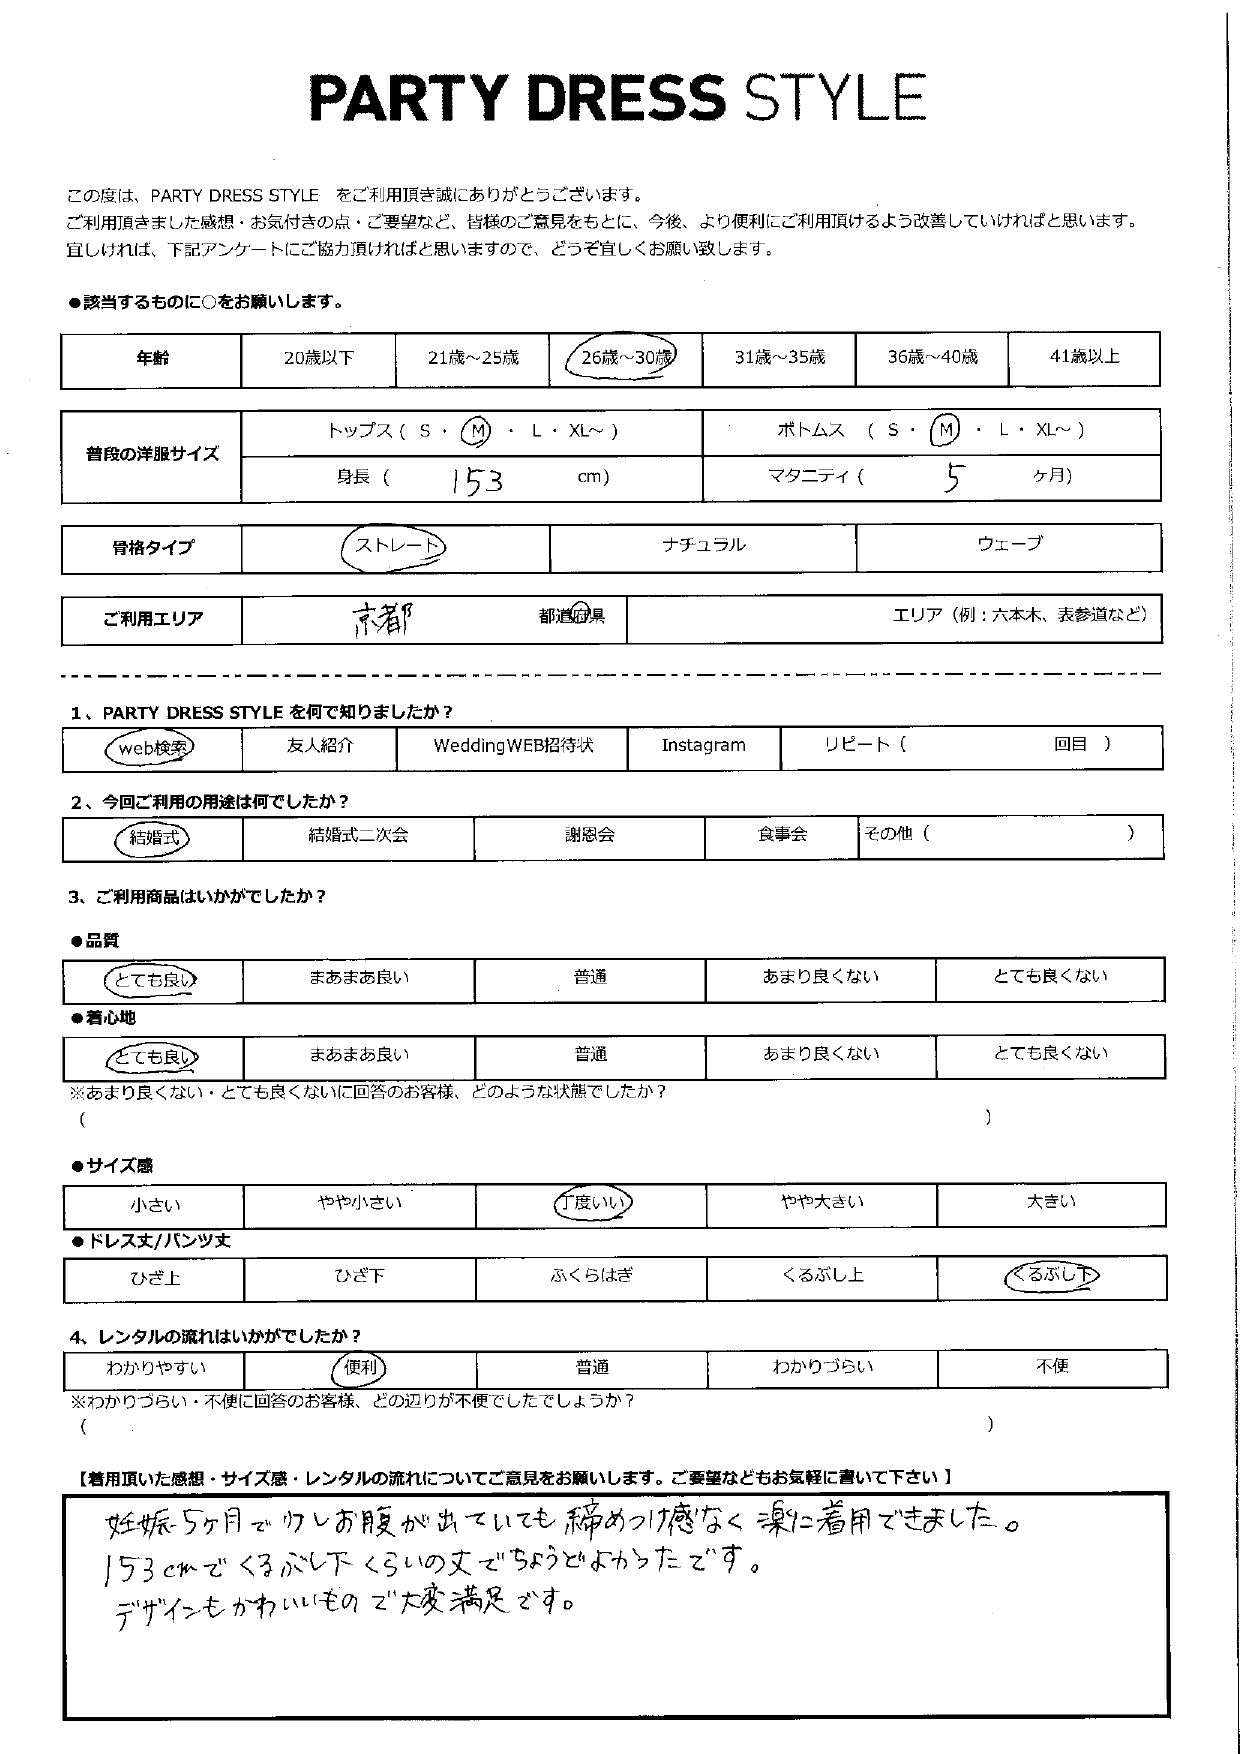 PARTY DRESS STYLE
この度は、PARTY DRESS STYLE をご利用頂き誠にありがとうございます。
ご利用頂きました感想・お気付きの点・ご要望など、皆様のご意見をもとに、今後、より便利にご利用頂けるよう改善していければと思います。
宜しければ、下記アンケートにご協力頂ければと思いますので、どうぞ宜しくお願い致します。
●該当するものに○をお願いします。
年齢 20歳以下 21歳～25歳 26歳～30歳 31歳～35歳 36歳～40歳 41歳以上
普段の洋服サイズ
トップス ( S ・ M ・ L ・ XL～ ) ボトムス ( S ・ M ・ L ・ XL～ )
身長 ( 153 cm) マタニティ ( 5 ヶ月)
骨格タイプ ストレート ナチュラル ウェーブ
ご利用エリア 京都 都道府県 エリア（例：六本木、表参道など）
1、PARTY DRESS STYLE を何で知りましたか？
web検索 友人紹介 WeddingWEB招待状 Instagram リピート ( 回目 )
2、今回ご利用の用途は何でしたか？
結婚式 結婚式二次会 謝恩会 食事会 その他 ( )
3、ご利用商品はいかがでしたか？
●品質
とても良い まあまあ良い 普通 あまり良くない とても良くない
●着心地
とても良い まあまあ良い 普通 あまり良くない とても良くない
※あまり良くない・とても良くないに回答のお客様、どのような状態でしたか？
( )
●サイズ感
小さい やや小さい 丁度いい やや大きい 大きい
●ドレス丈/パンツ丈
ひざ上 ひざ下 ふくらはぎ くるぶし上 くるぶし下
4、レンタルの流れはいかがでしたか？
わかりやすい 便利 普通 わかりづらい 不便
※わかりづらい・不便に回答のお客様、どの辺りが不便でしたでしょうか？
( )
【着用頂いた感想・サイズ感・レンタルの流れについてご意見をお願いします。ご要望などもお気軽に書いて下さい】
妊娠5ヶ月で少しお腹が出ていても締めつけ感なく楽に着用できました。
153cmでくるぶし下くらいの丈でちょうどよかったです。
デザインもかわいいもので大変満足です。